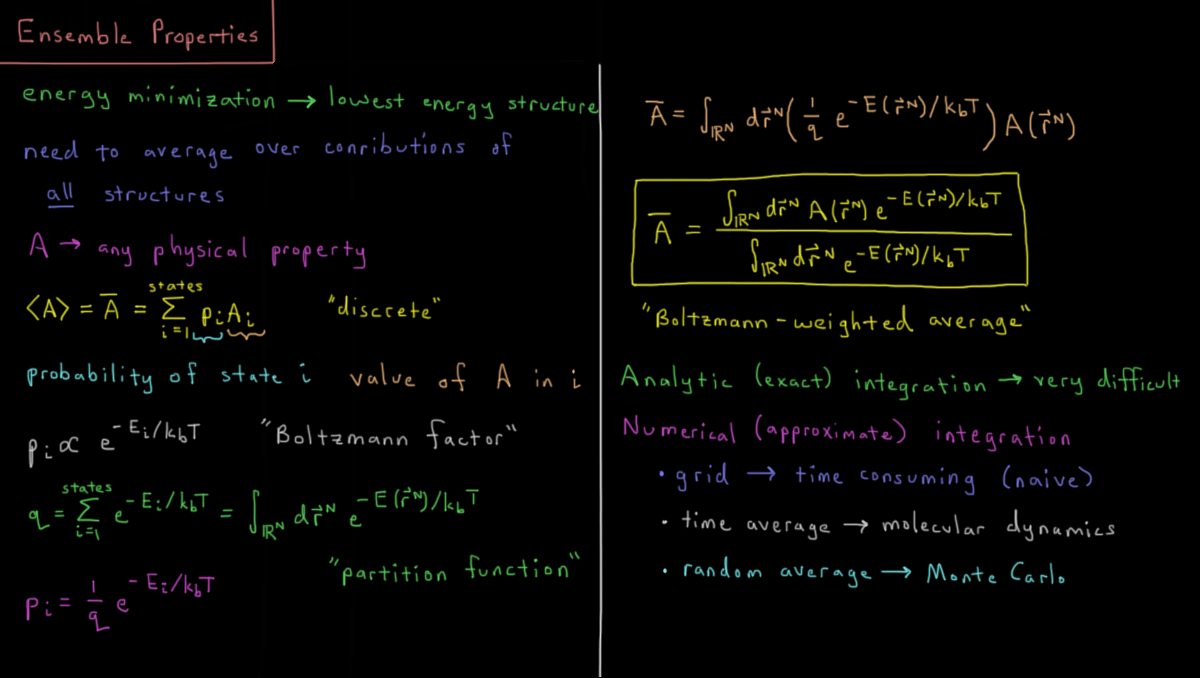 Ensemble Properties
energy minimization → lowest energy structure
need to average over conributions of
all structures
A → any physical property
⟨A⟩ = A̅ = Σ_{i=1}^{states} p_i A_i "discrete"
probability of state i value of A in i
p_i ∝ e^{-E_i/k_bT} "Boltzmann factor"
q = Σ_{i=1}^{states} e^{-E_i/k_bT} = ∫_{ℝ^N} dr⃗^N e^{-E(r⃗^N)/k_bT}
"partition function"
p_i = 1/q e^{-E_i/k_bT}
A̅ = ∫_{ℝ^N} dr⃗^N (1/q e^{-E(r⃗^N)/k_bT}) A(r⃗^N)
A̅ = ∫_{ℝ^N} dr⃗^N A(r⃗^N) e^{-E(r⃗^N)/k_bT} / ∫_{ℝ^N} dr⃗^N e^{-E(r⃗^N)/k_bT}
"Boltzmann-weighted average"
Analytic (exact) integration → very difficult
Numerical (approximate) integration
• grid → time consuming (naive)
• time average → molecular dynamics
• random average → Monte Carlo